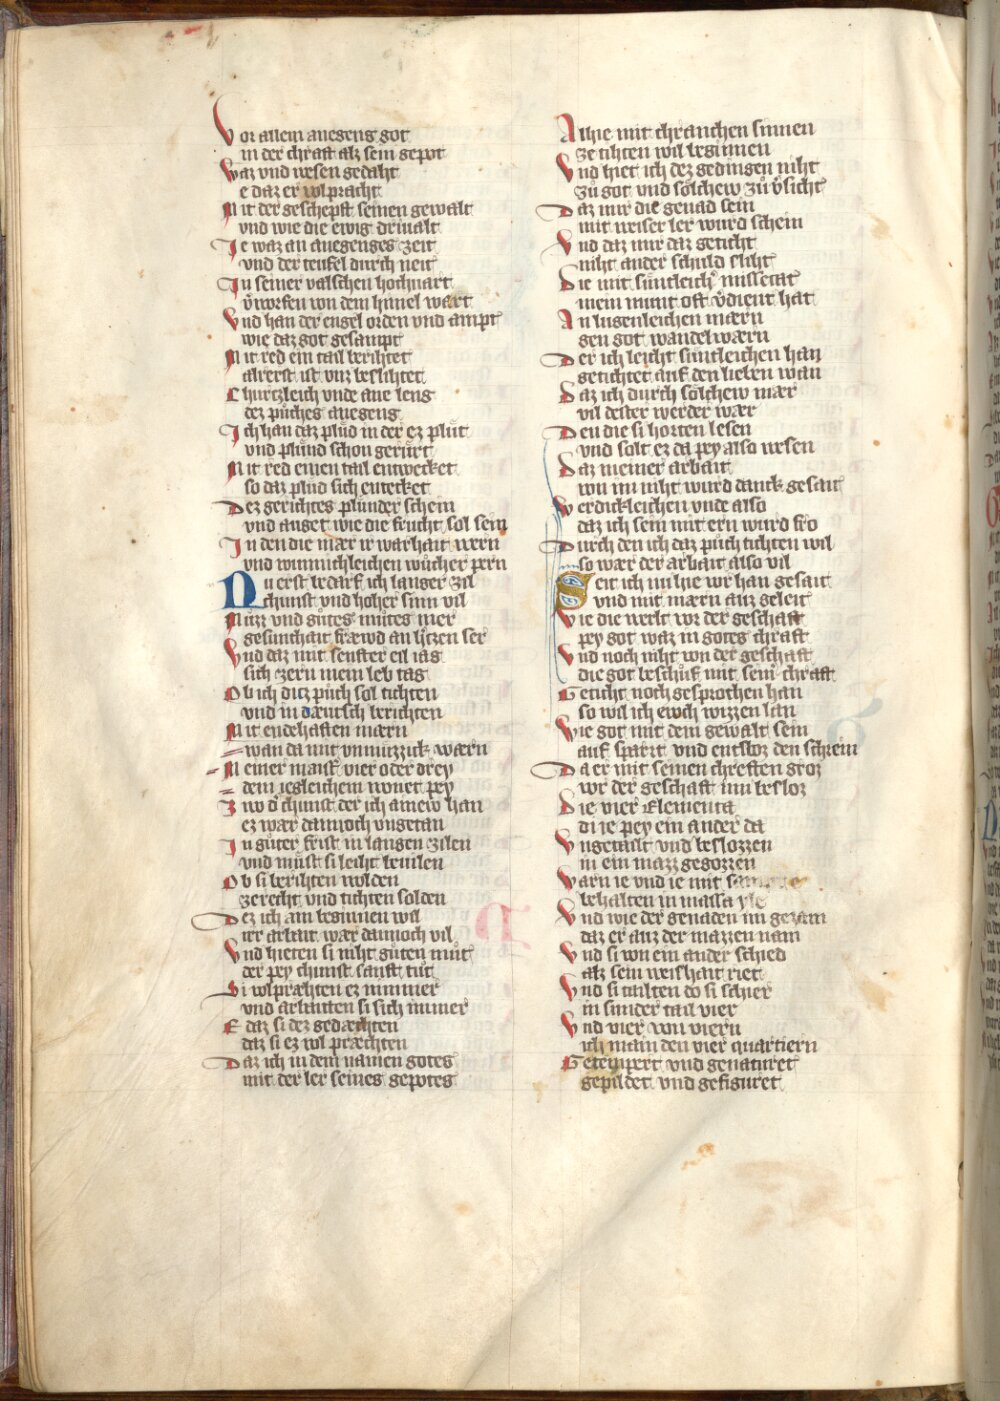 Vor allem anegeng got
in der chraft alz sein gepot
Waz vnd wesen gedaht
e daz er volpracht
Mit der geschepft seinen gewalt
vnd wie die ewig drivalt
Ie waz an anegenges zeit
vnd der teufel durch neit
In seiner valschen hochuart
v̓worfen von dem himel wart
Vnd han der engel orden vnd ampt
wie daz got gesampt
Mit red ein tail berihtet
alrerst ist vnz beslihtet
Churtzleich vnde ane leng
dez puͦches anegeng
Ich han daz pluͦd in der ez pluͦt
vnd pluͤnd schon geruͤrt
Mit red einen tail entwecket
so daz pluͦd sich entecket
Dez gerichtes pluͤnder schein
vnd auget wie die frucht sol sein
In den die mær ir warhait wern
vnd winnichleichen wuͦcher pern
Nu erst bedarf ich langer zil
chunst vnd hoher sinn vil
Muzz vnd guͦtes muͦtes mer
gesunthait fræwd an litzen ser
Vnd daz mit senfter eil iag
sich zern mein leb tag
Ob ich ditz puͦch sol tichten
vnd in dæutsch berichten
Mit endehaften mærn
wan da mit vnmuͤzzick wærn
Meiner maist̓ vier oder drey
dem iegleichem wonet pey
Zwo d̓ chunst der ich ainew han
ez wær dannoch vngetan
In guͦter frist in langen zilen
vnd muͤst si leiht beuilen
Ob si berihten wolden
zerecht vnd tichten solden
Dez ich am beginnen wil
irr arbait wær dannoch vil
Vnd hieten si niht guͦten muͦt
der pey chunst sanft tuͦt
Si volpræhten ez nimmer
vnd arbaitten si sich immer
E daz si dez gedæchten
daz si ez vol præchten
Daz ich in dem namen gotes
mit der ler seines gepotes
Allhie mit chranchen sinnen
ze tihten wil beginnen
Vnd hiet ich dez gedingen niht
zuͦ got vnd soͤlchew zuͦ v̓siht
Daz mir die genad sein
mit weiser ler wurd schein
Vnd daz mir daz geticht
niht ander schuld sliht
Die mit suͤntleich̓ missetat
mein munt oft v̓dient hat
An lugenleichen mærn
gen got wandelwærn
Der ich leicht suͤntleichen han
getichtet auf den lieben wan
Daz ich durch soͤlchew mær
vil dester werder wær
Den die si horten lesen
vnd solt ez da pey also wesen
Daz meiner arbait
von im niht wurd danck gesait
Werdickleichen vnde also
daz ich sein mit ern wurd fro
Durch den ich daz puͦch tichten wil
so wær der arbait also vil
Seit ich nu hie vor han gesait
vnd mit mærn auz geleit
Wie die werlt vor der geschaft
pey got waz in gotes chraft
Vnd noch niht von der geschaft
die got beschuͦf mit sein̓ chraft
Geticht noch gesprochen han
so wil ich ewch wizzen lan
Wie got mit dem gewalt sein
auf spart vnd entsloz den schrein
Da er mit seinen chreften groz
vor der geschaft inn besloz
Die vier Elementa
di ie pey ein ander da
Vngetailt vnd beslozzen
in ein mazz gegozzen
Warn ie vnd ie mit
behalten in massa yle
Vnd wie der genaden im gezam
daz er auz der mazzen nam
Vnd si von ein ander schied
alz sein weishait riet
Vnd si tailten do si schier
in sunder tail vier
Vnd vier von viern
ich main den vier quartiern
Getempert vnd genaturet
gepildet vnd gefiguret